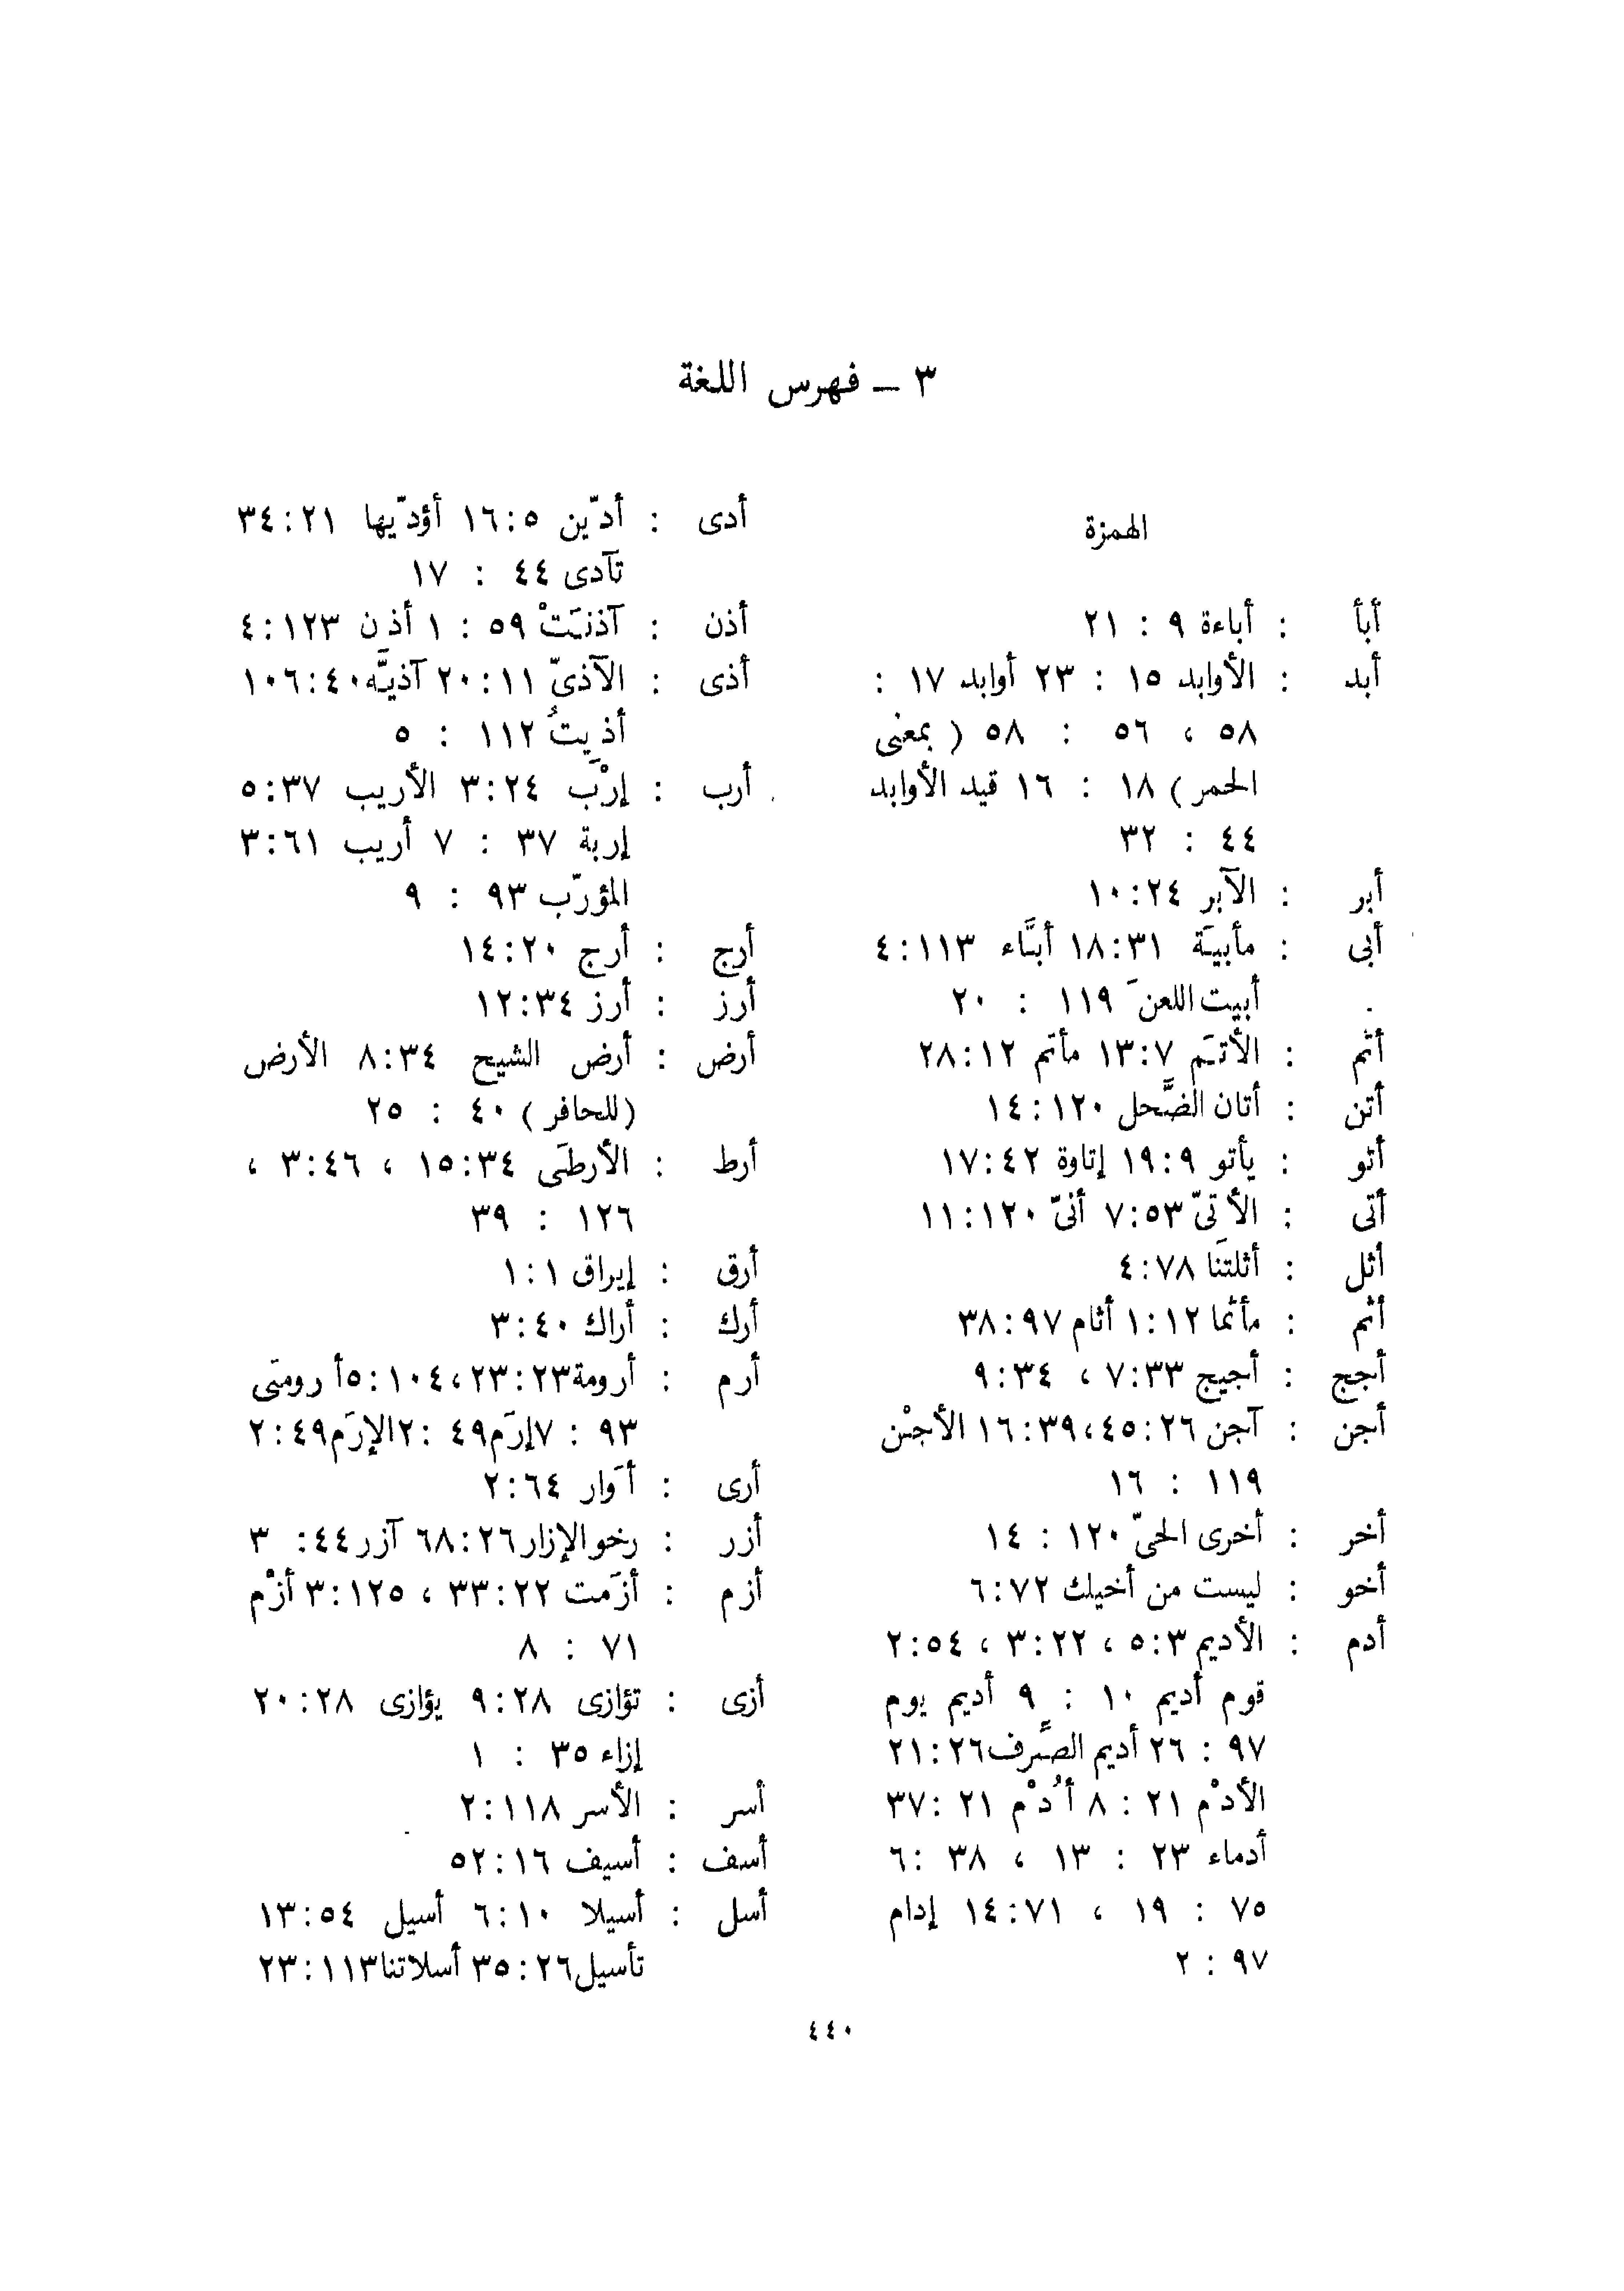 ٣ – فهرس اللغة
الهمزة
أبأ : أباءة ٩ : ٢١
أبد : الأوابد ١٥ : ٢٣ أوابد ١٧ :
٥٨ ، ٥٦ : ٥٨ ( بمعنى
الحمر ) ١٨ : ١٦ قيد الأوابد
٤٤ : ٣٢
أبر : الآبر ٢٤:١٠
أبى : مأبيَة ٣١:١٨ أبَّاء ١١٣:٤
أبيت اللعنَ ١١٩ : ٢٠
أتم : الأتَم ٧:١٣ مأتم ١٢:٢٨
أتن : أتان الضَّحل ١٢٠:١٤
أتو : يأتو ٩:١٩ إتاوة ٤٢:١٧
أتى : الأتىّ ٥٣:٧ أتىّ ١٢٠:١١
أثل : أثلتنَا ٧٨:٤
أثم : مأثما ١٢:١ أثام ٩٧:٣٨
أجج : أجيج ٣٣:٧ ، ٣٤:٩
أجن : آجن ٢٦:٤٥،٣٩:١٦ الأجْن
١١٩ : ١٦
أخر : أخرى الحىّ ١٢٠ : ١٤
أخو : ليست من أخيك ٧٢:٦
أدم : الأديم ٣:٥ ، ٢٢:٣ ، ٥٤:٢
قوم أديم ١٠ : ٩ أديم يوم
٩٧ : ٢٦ أديم الصِّرف ٢٦:٢١
الأدْم ٢١ : ٨ أُدْم ٢١ :٣٧
أدماء ٢٣ : ١٣ ، ٣٨ :٦
٧٥ : ١٩ ، ٧١:١٤ إدام
٩٧ : ٢
أدى : أدّين ٥:١٦ أؤدّيها ٢١:٣٤
تآدى ٤٤ : ١٧
أذن : آذنَتْ ٥٩ : ١ أذن ١٢٣:٤
أذى : الآذىّ ١١:٢٠ آذيَّه ٤٠:١٠٦
أذِيتُ ١١٢ : ٥
أرب : إرْب ٢٤:٣ الأريب ٣٧:٥
إربة ٣٧ : ٧ أريب ٦١:٣
المؤرّب ٩٣ : ٩
أرج : أرج ٢٠:١٤
أرز : أرز ٣٤:١٢
أرض : أرض الشيح ٣٤:٨ الأرض
(للحافر) ٤٠ : ٢٥
أرط : الأرطَى ٣٤:١٥ ، ٤٦:٣ ،
١٢٦ : ٣٩
أرق : إيراق ١:١
أرك : أراك ٤٠:٣
أرم : أرومة ٢٣:٢٣،١٠٤:٥ أرومتَى
٩٣ : ٧ إرَم ٤٩ :٢ الإرَم ٤٩:٢
أرى : أوَار ٦٤:٢
أزر : رخو الإزار ٢٦:٦٨ آزر ٤٤: ٣
أزم : أزَمت ٢٢:٣٣ ، ١٢٥:٣ أزْم
٧١ : ٨
أزى : تؤازى ٢٨:٩ يؤازى ٢٨:٢٠
إزاء ٣٥ : ١
أسر : الأسر ١١٨:٢
أسف : أسيف ١٦:٥٢
أسل : أسيلا ١٠:٦ أسيل ٥٤:١٣
تأسيل ٢٦:٣٥ أسلاتنا ١١٣:٢٣
٤٤٠